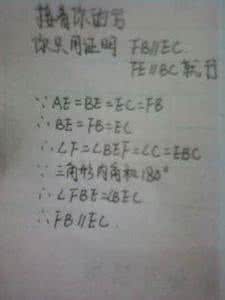 接着你的写
你只用证明 FB∥EC
FE∥BC 就行
∵AE=BE=EC=FB
∴BE=FB=EC
∴∠F=∠BEF=∠C=∠EBC
∵三角形内角和180°
∴∠FBE=∠BEC
∴FB∥EC.